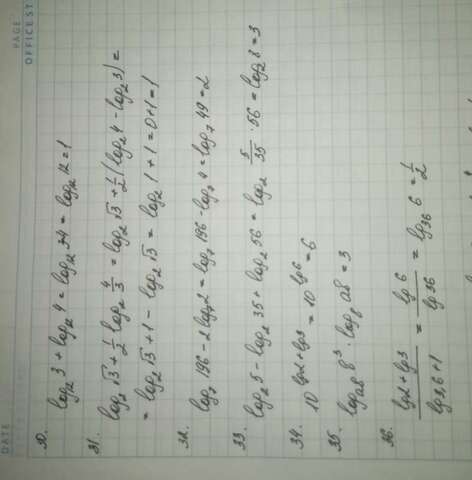 PAGE
OFFICE ST
DATE
30. log₁₂ 3 + log₁₂ 4 = log₁₂ 3·4 = log₁₂ 12 = 1
31. log₂ √3 + 1/2 log₂ 4/3 = log₂ √3 + 1/2 (log₂ 4 - log₂ 3) =
= log₂ √3 + 1 - log₂ √3 = log₂ 1 + 1 = 0 + 1 = 1
32. log₇ 196 - 2 log₇ 2 = log₇ 196 - log₇ 4 = log₇ 49 = 2
33. log₂ 5 - log₂ 35 + log₂ 56 = log₂ 5/35 · 56 = log₂ 8 = 3
34. 10^(lg 2 + lg 3) = 10^(lg 6) = 6
35. log_a8 8³ · log₈ a8 = 3
36. (lg 2 + lg 3)/(lg 3,6 + 1) = lg 6/lg 36 = log₃₆ 6 = 1/2